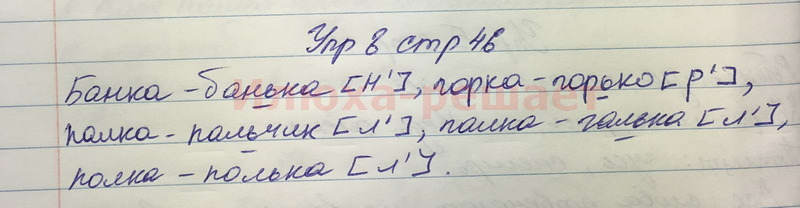 Упр 8 стр 46
Банка - банька [н'], горка - горько [р'],
палка - пальчик [л'], галка - галька [л'],
полка - полька [л'].
Илюха-решает